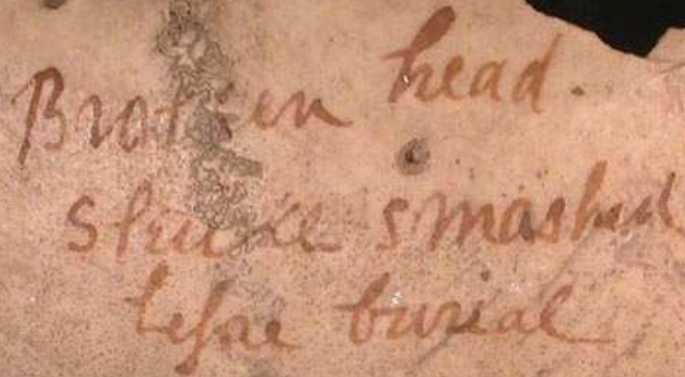 Broken head.
smashed
before burial